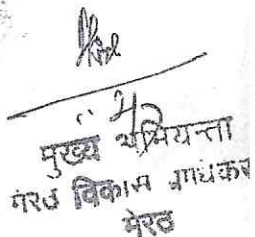 मुख्य अभियन्ता
मेरठ विकास प्राधिकर
मेरठ